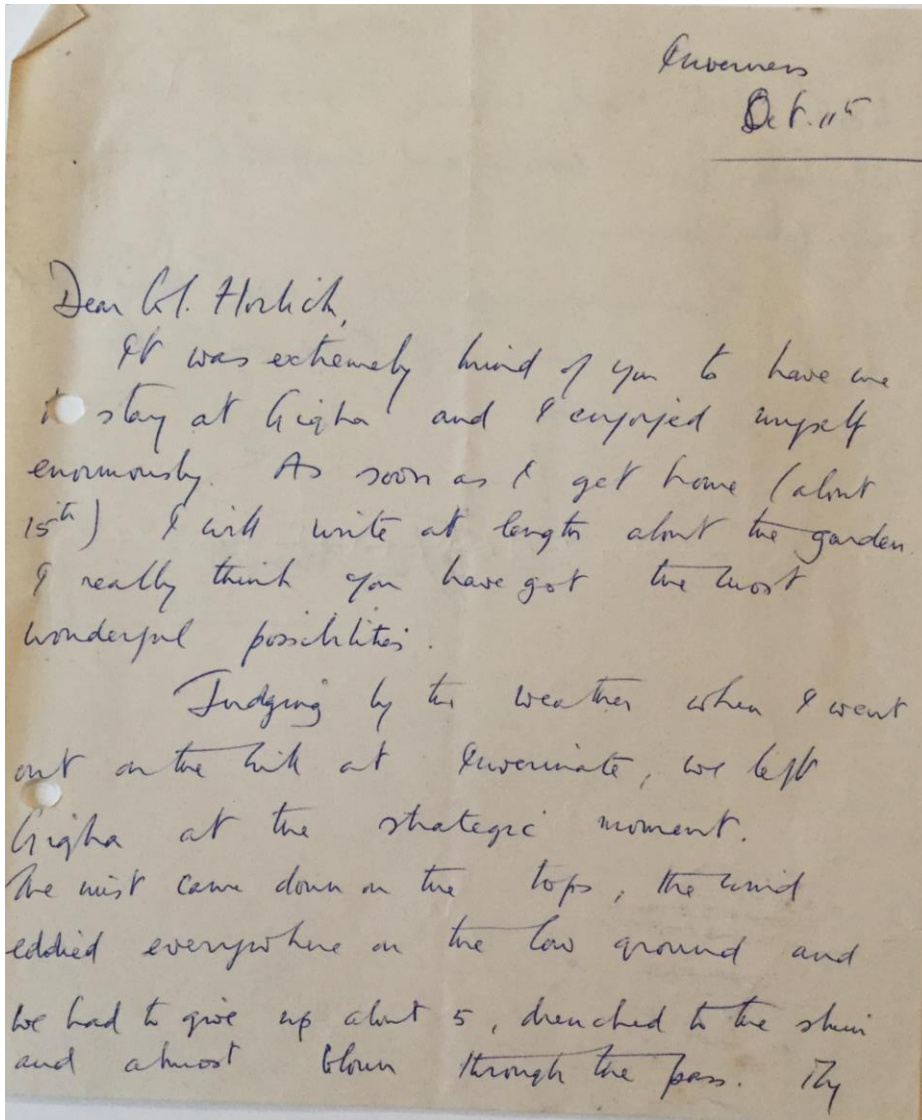 Inverness
Oct. 11th
Dear Col. Horlick,
It was extremely kind of you to have me
to stay at Gigha and I enjoyed myself
enormously. As soon as I get home (about
15th) I will write at length about the garden.
I really think you have got the most
wonderful possibilities.
Judging by the weather when I went
out on the hill at Inverinate, we left
Gigha at the strategic moment.
The mist came down on the tops, the wind
eddied everywhere on the low ground and
we had to give up about 5, drenched to the skin
and almost blown through the pass. My